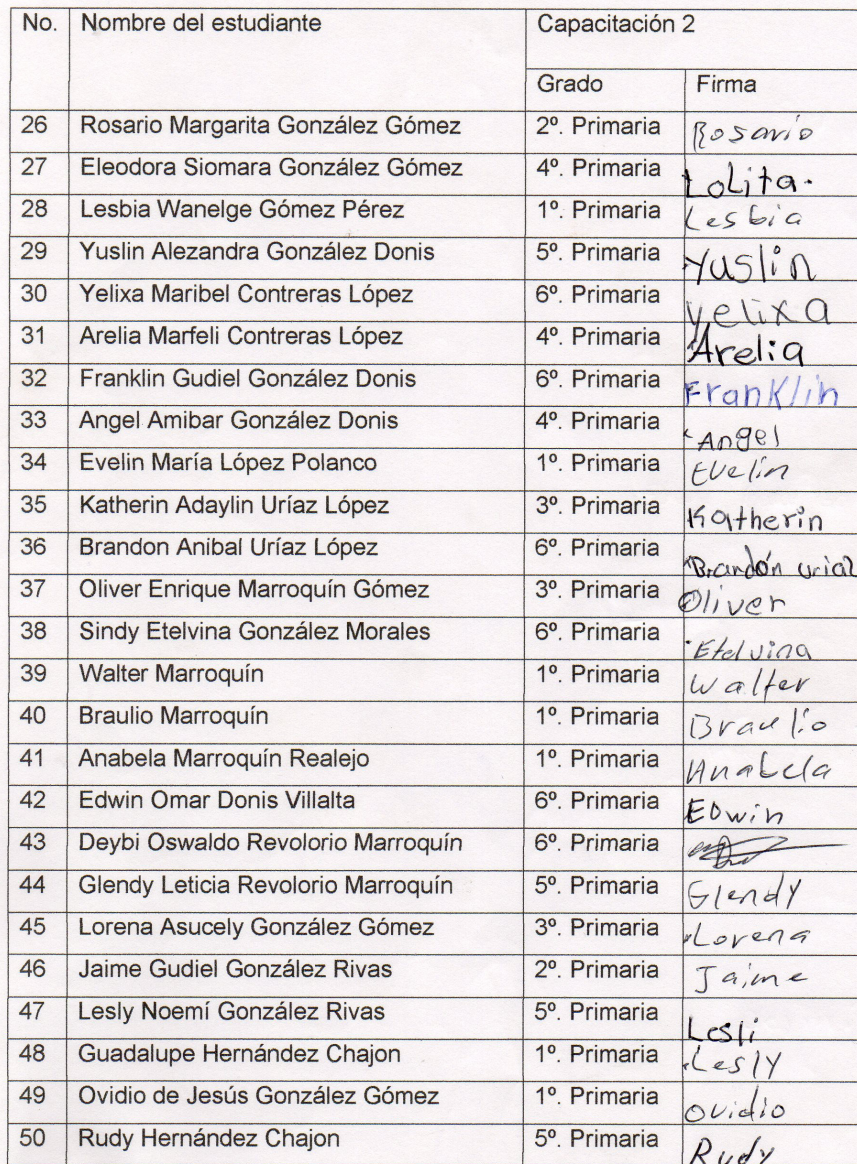 No. Nombre del estudiante Capacitación 2
Grado Firma
26 Rosario Margarita González Gómez 2º. Primaria Rosario
27 Eleodora Siomara González Gómez 4º. Primaria Lolita.
28 Lesbia Wanelge Gómez Pérez 1º. Primaria Lesbia
29 Yuslin Alezandra González Donis 5º. Primaria Yuslin
30 Yelixa Maribel Contreras López 6º. Primaria yelixa
31 Arelia Marfeli Contreras López 4º. Primaria Arelia
32 Franklin Gudiel González Donis 6º. Primaria Franklin
33 Angel Amibar González Donis 4º. Primaria Angel
34 Evelin María López Polanco 1º. Primaria Evelin
35 Katherin Adaylin Uríaz López 3º. Primaria Katherin
36 Brandon Anibal Uríaz López 6º. Primaria Brandón urial
37 Oliver Enrique Marroquín Gómez 3º. Primaria Oliver
38 Sindy Etelvina González Morales 6º. Primaria Etelvina
39 Walter Marroquín 1º. Primaria Walter
40 Braulio Marroquín 1º. Primaria Braulio
41 Anabela Marroquín Realejo 1º. Primaria Anabela
42 Edwin Omar Donis Villalta 6º. Primaria EDwin
43 Deybi Oswaldo Revolorio Marroquín 6º. Primaria
44 Glendy Leticia Revolorio Marroquín 5º. Primaria Glendy
45 Lorena Asucely González Gómez 3º. Primaria Lorena
46 Jaime Gudiel González Rivas 2º. Primaria Jaime
47 Lesly Noemí González Rivas 5º. Primaria Lesli
48 Guadalupe Hernández Chajon 1º. Primaria Lesly
49 Ovidio de Jesús González Gómez 1º. Primaria Ovidio
50 Rudy Hernández Chajon 5º. Primaria Rudy